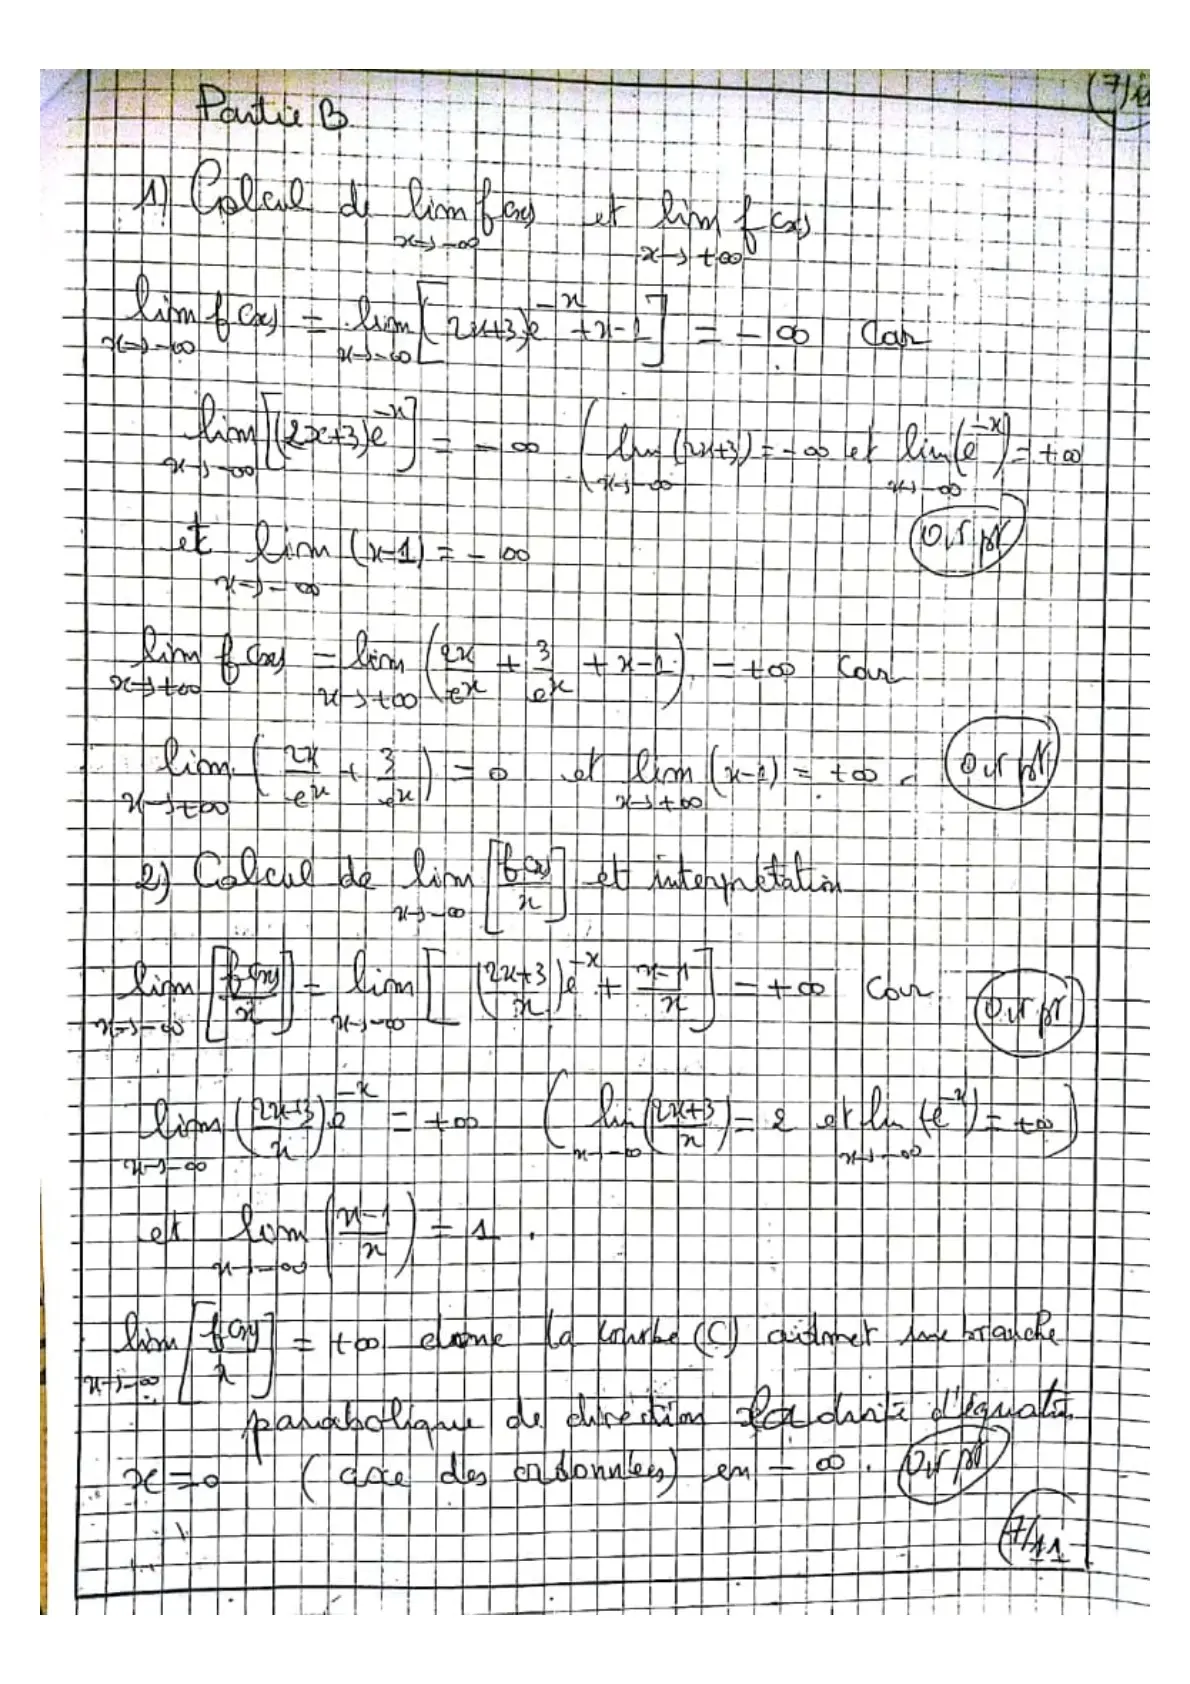 (7/11
Partie B
1) Calcul de lim f(x) et lim f(x)
x→-∞ x→+∞
lim f(x) = lim [(2x+3)e^{-x} + x-1] = -∞ Car
x→-∞ x→-∞
lim [(2x+3)e^{-x}] = -∞ (lim (2x+3) = -∞ et lim (e^{-x}) = +∞
x→-∞ x→-∞ x→-∞
et lim (x-1) = -∞ 0,5 pt
x→-∞
lim f(x) = lim (2x/e^x + 3/e^x + x-1) = +∞ Car
x→+∞ x→+∞
lim (2x/e^x + 3/e^x) = 0 et lim (x-1) = +∞. 0,5 pt
x→+∞ x→+∞
2) Calcul de lim [f(x)/x] et interprétation
x→-∞
lim [f(x)/x] = lim [(2x+3/x)e^{-x} + x-1/x] = +∞ Car 0,5 pt
x→-∞ x→-∞
lim (2x+3/x)e^{-x} = +∞ (lim (2x+3/x) = 2 et lim (e^{-x}) = +∞)
x→-∞ x→-∞ x→-∞
et lim (x-1/x) = 1.
x→-∞
lim [f(x)/x] = +∞ donc la courbe (C) admet une branche
x→-∞
parabolique de direction la droite d'équation
x = 0 (axe des ordonnées) en -∞. 0,5 pt
7/11